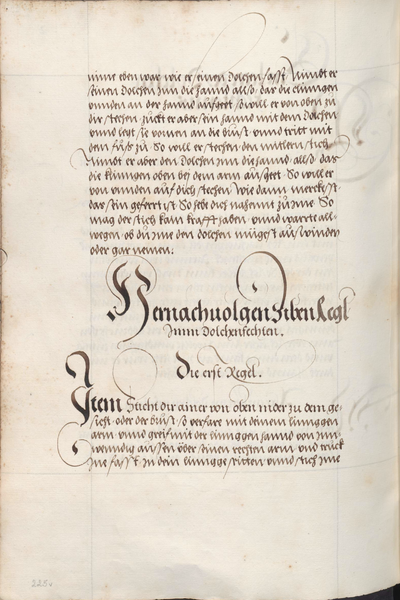 nime eben war wie er seinen dolchen fasst Nimdt er
seinen dolchen Inn die hannd allso dar die clinngen
vnnden an der hannd aufgeet so will er von oben zu
dir stechen zuckt er aber sein hannd mit dem dolchen
vnnd legt sie vornen an die brust vnnd tritt mit
dem fuß zu So will er stechen den mitlern stich
Nimdt er aber den dolchen Inn die hannd allso das
die klinngen oben bey dem arm ausgeet So will er
von vnnden auf dich stechen Wie dann merckest
dar sein gefert ist So heb dich nahennt zu ime So
mag der stich kain krafft haben vnnd warte all-
wegen ob du ime den dolchen mügest auswinden
oder gar nemen:
Hernachuolgen Siben Regl
Zumm dolchenfechten.
Die erst Regel.
Item Sticht dir ainer von oben nider zu dem ge-
sicht oder der brust so verfare mit deinem linnggen
arm vnnd greif mit der linnggen hannd von Inn-
wenndig aussen über seinen rechten arm vnnd truck
Ine fasst In dein linngge seitten vnnd stich Ime
225v